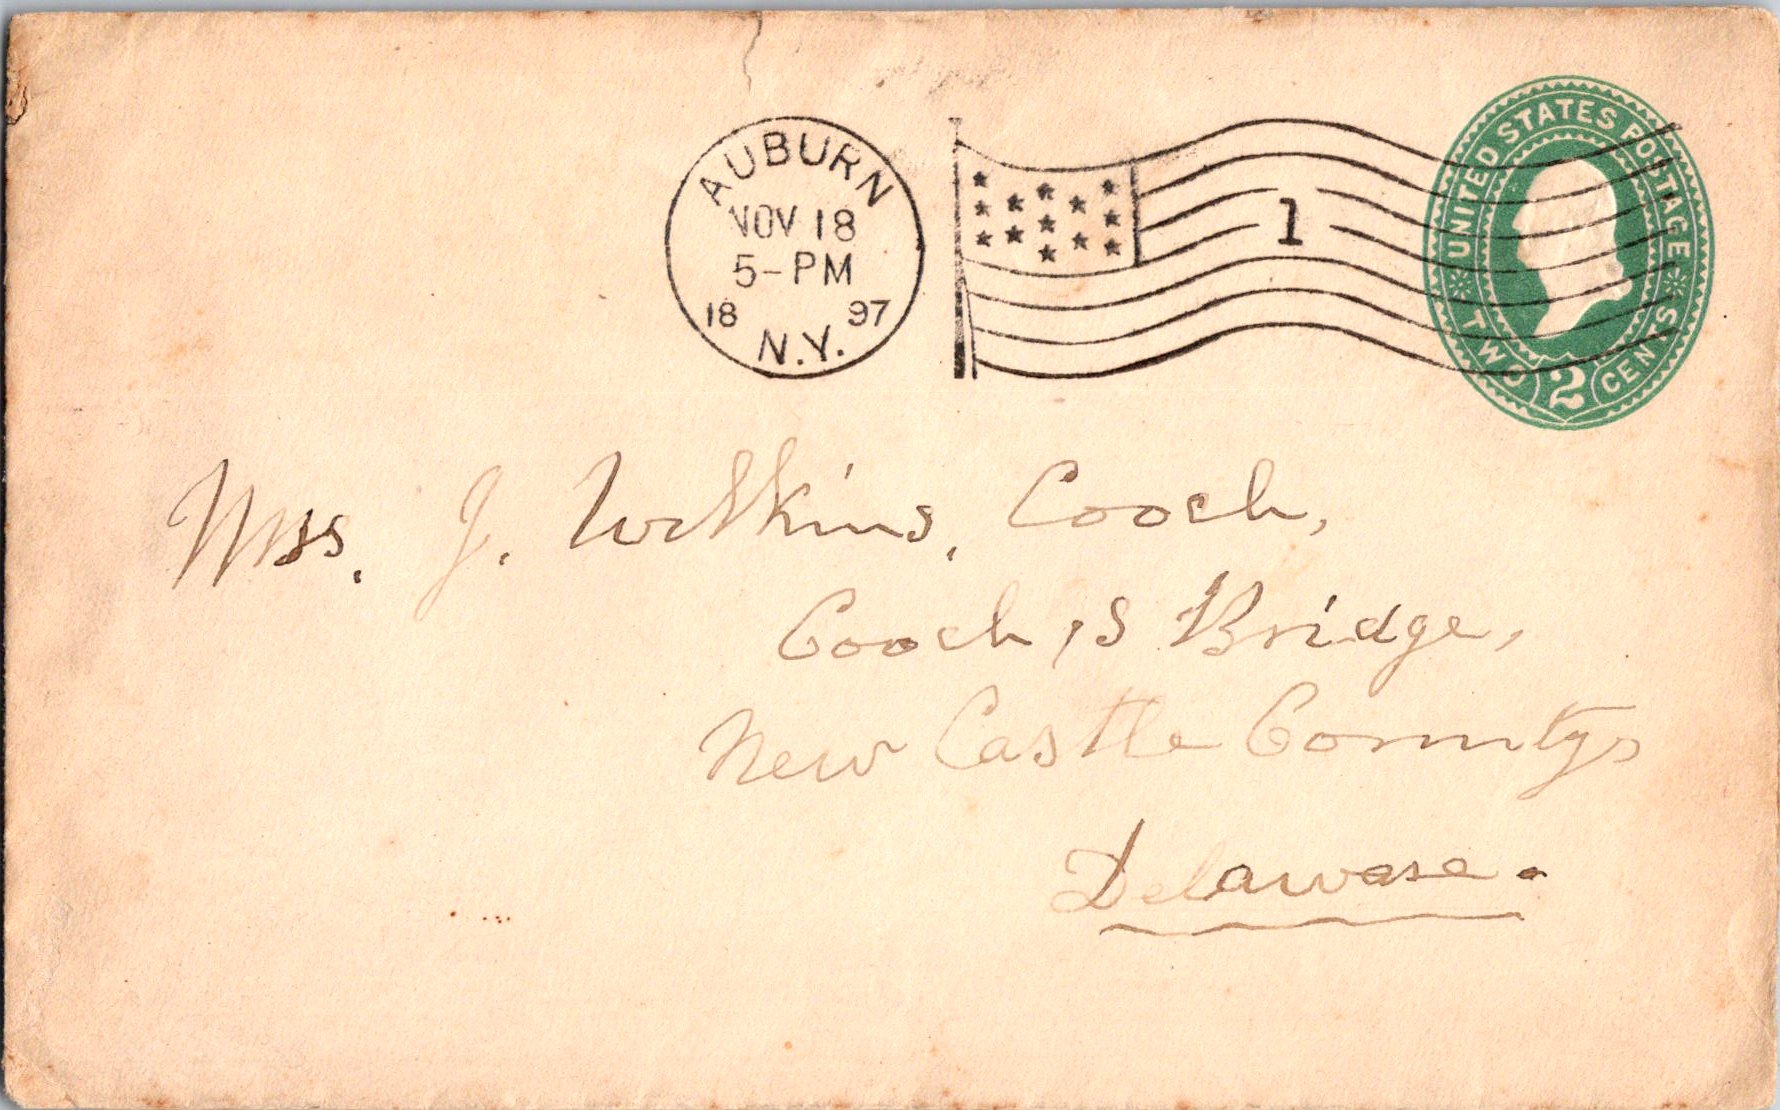 AUBURN
NOV 18
5-PM
18 97
N.Y.
1
UNITED STATES POSTAGE
TWO 2 CENTS
Mrs. J. Wilkins, Cooch,
Cooch,s Bridge,
New Castle County,
Delaware.